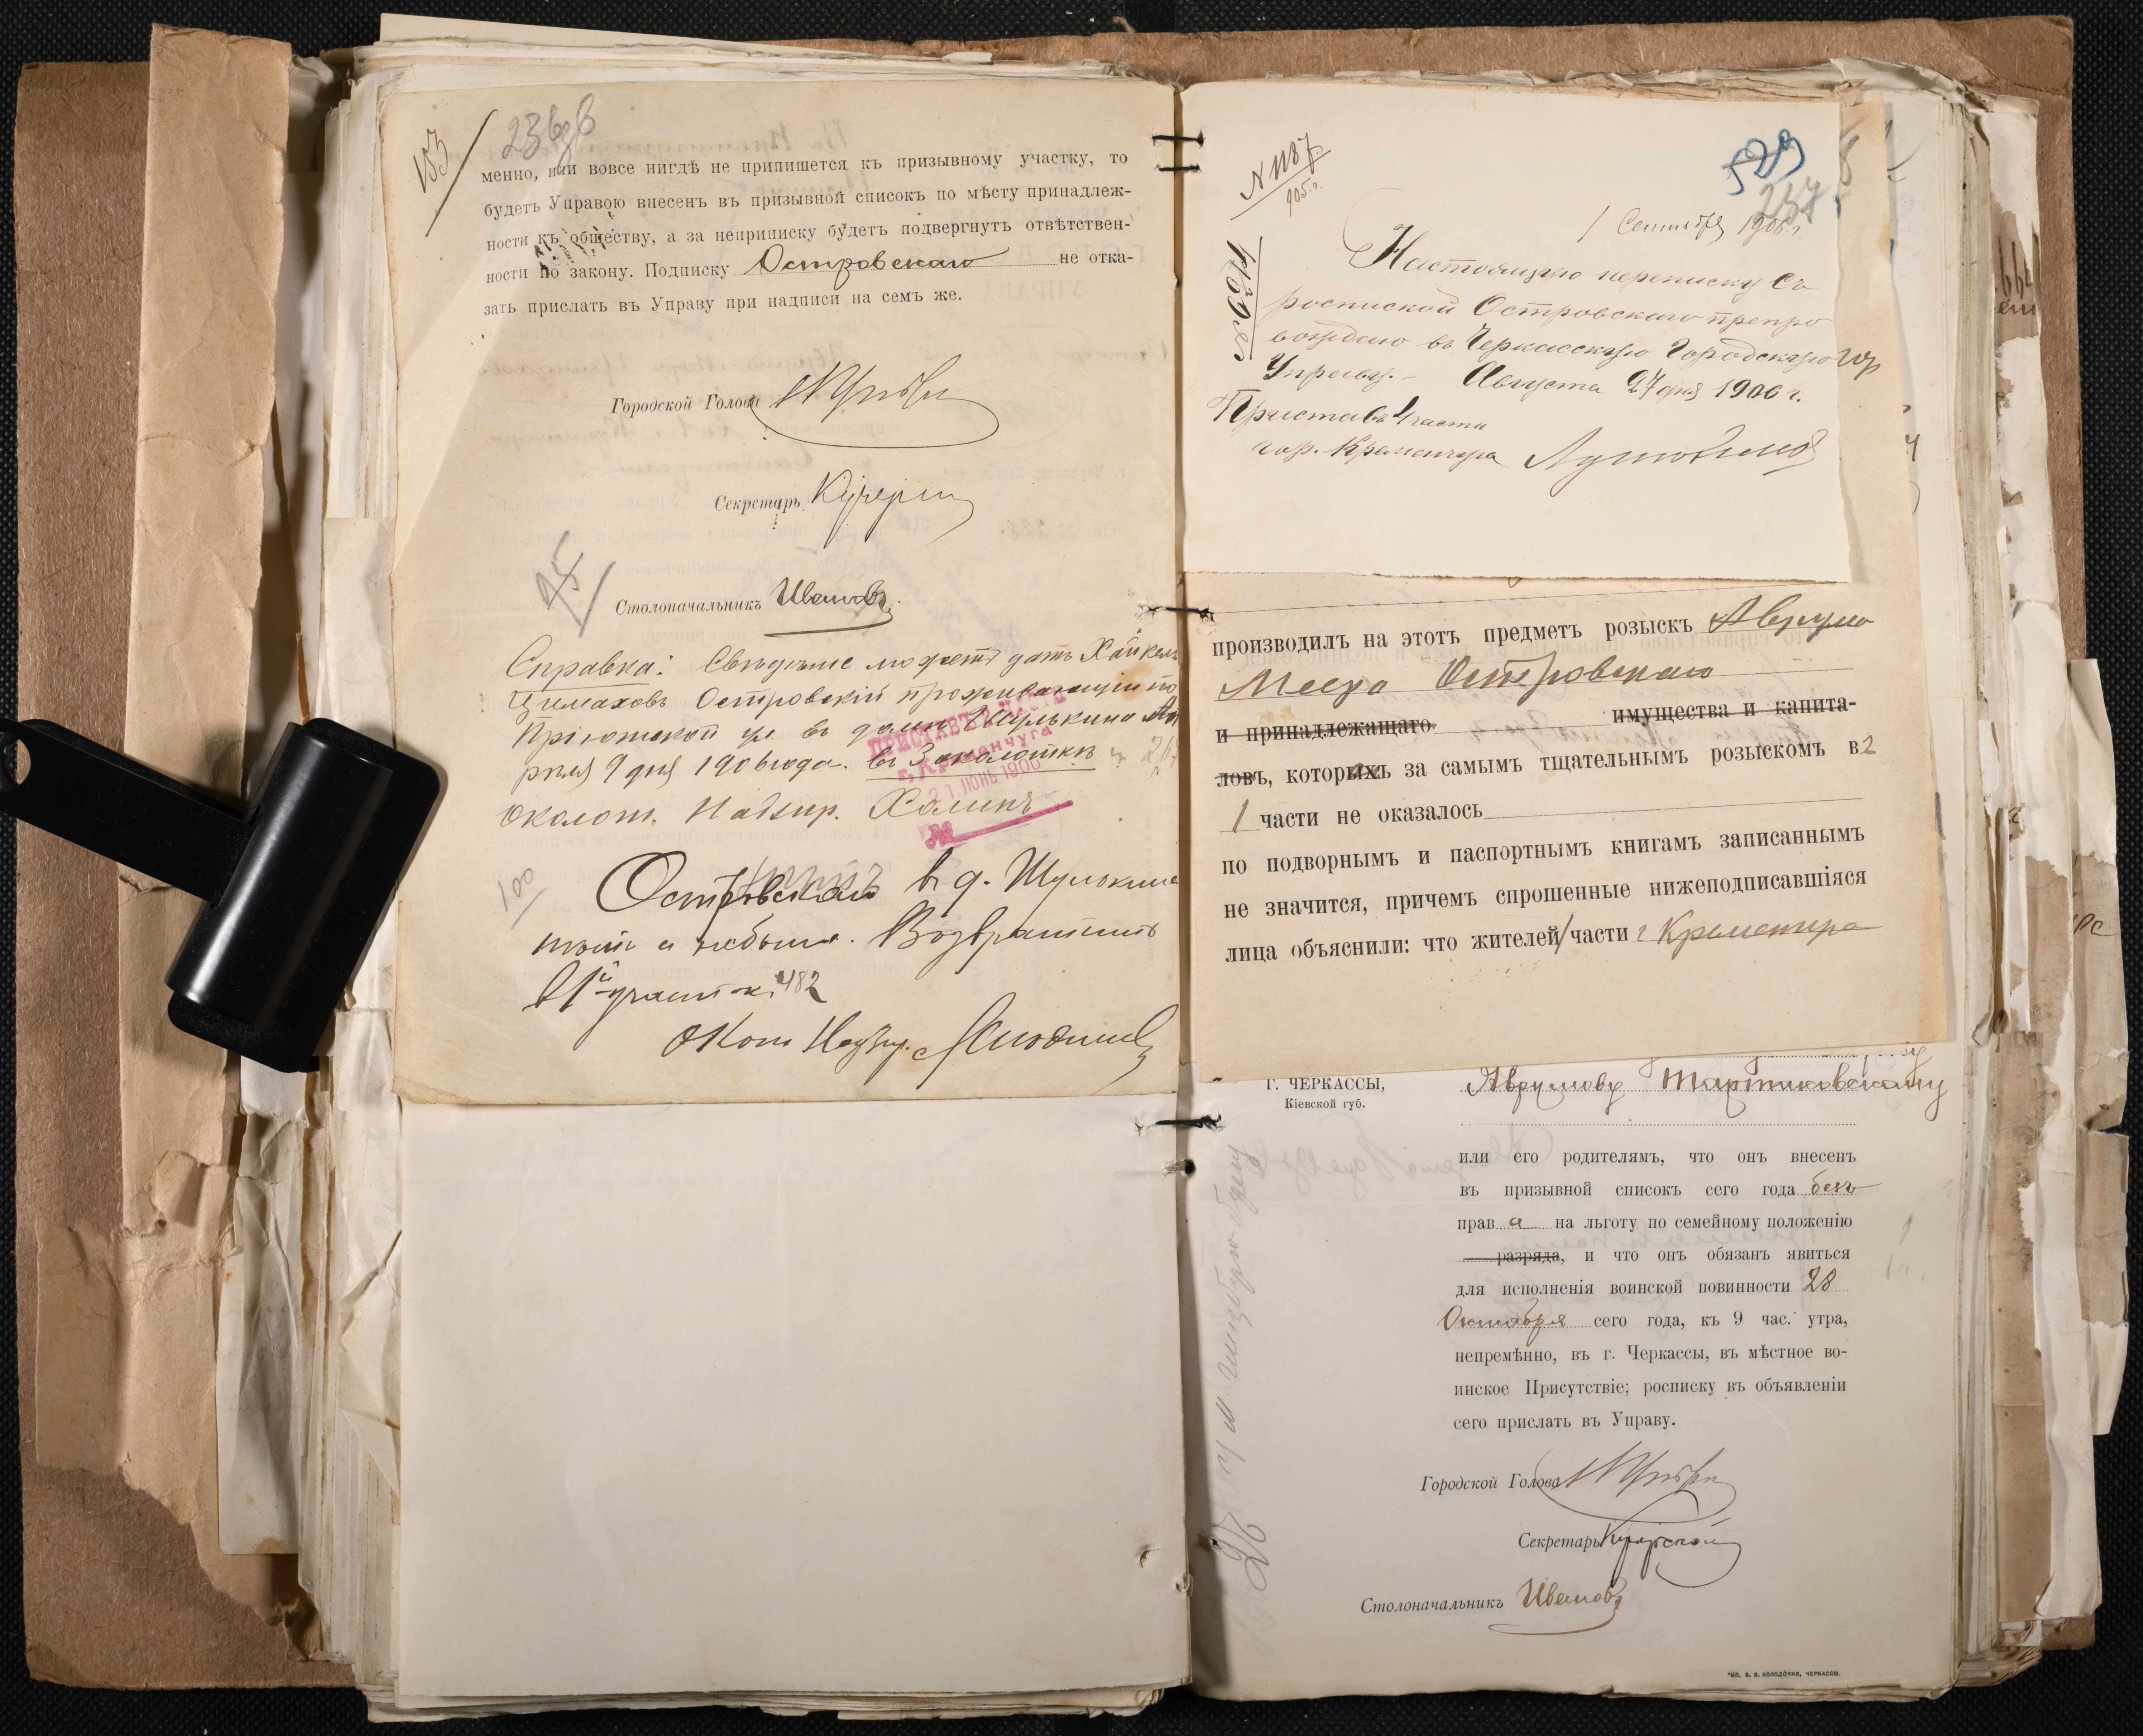 153
236об
менно, или вовсе нигдѣ не припишется къ призывному участку, то
будетъ Управою внесенъ въ призывной списокъ по мѣсту принадлеж-
ности къ обществу, а за неприписку будетъ подвергнутъ отвѣтствен-
ности по закону. Подписку Островскаго не отка-
зать прислать въ Управу при надписи на семъ же.
Городской Голова
Секретарь
Столоначальникъ Ивановъ
Справка: Свѣдѣніе можетъ дать Хайкель
Цимаховъ Островскій проживающій по
Пріютской ул. въ домѣ Шулькина Ап
рѣля 9 дня 1906 года. въ 3 околоткѣ
Околот. Надзир.
ПРИСТАВЪ ЧАСТИ
г. Кременчуга
21 ІЮНЬ 1906
№
100
Островскаго въ д. Шулькина
нѣтъ и небыло. Возвратить
въ 1й участокъ 482
Окол Надзир.
N 1187
905 г.
529
237
1 Сентября 1906 г.
Настоящую переписку съ
роспиской Островскаго препро
вождаю въ Черкасскую Городскую
Управу. Августа 27 дня 1906 г.
Приставъ 1 части
гор. Кременчуга
производилъ на этотъ предметъ розыскъ Аврумо
Меера Островскаго
и принадлежащаго имущества и капита-
ловъ, которыхъ за самымъ тщательнымъ розыскомъ въ
1 части не оказалось
по подворнымъ и паспортнымъ книгамъ записаннымъ
не значится, причемъ спрошенные нижеподписавшіяся
лица объяснили: что жителей 1 части г Кременчуга
Г. ЧЕРКАССЫ,
Кіевской губ.
Аврумову Мартиковскому
или его родителямъ, что онъ внесенъ
въ призывной списокъ сего года безъ
прав а на льготу по семейному положенію
разряда, и что онъ обязанъ явиться
для исполненія воинской повинности 28
Октября сего года, къ 9 час. утра,
непремѣнно, въ г. Черкассы, въ мѣстное во-
инское Присутствіе; росписку въ объявленіи
сего прислать въ Управу.
Городской Голова
Секретарь
Столоначальникъ Ивановъ
Тип. В. В. КОЛОДОЧКИ, ЧЕРКАССЫ.